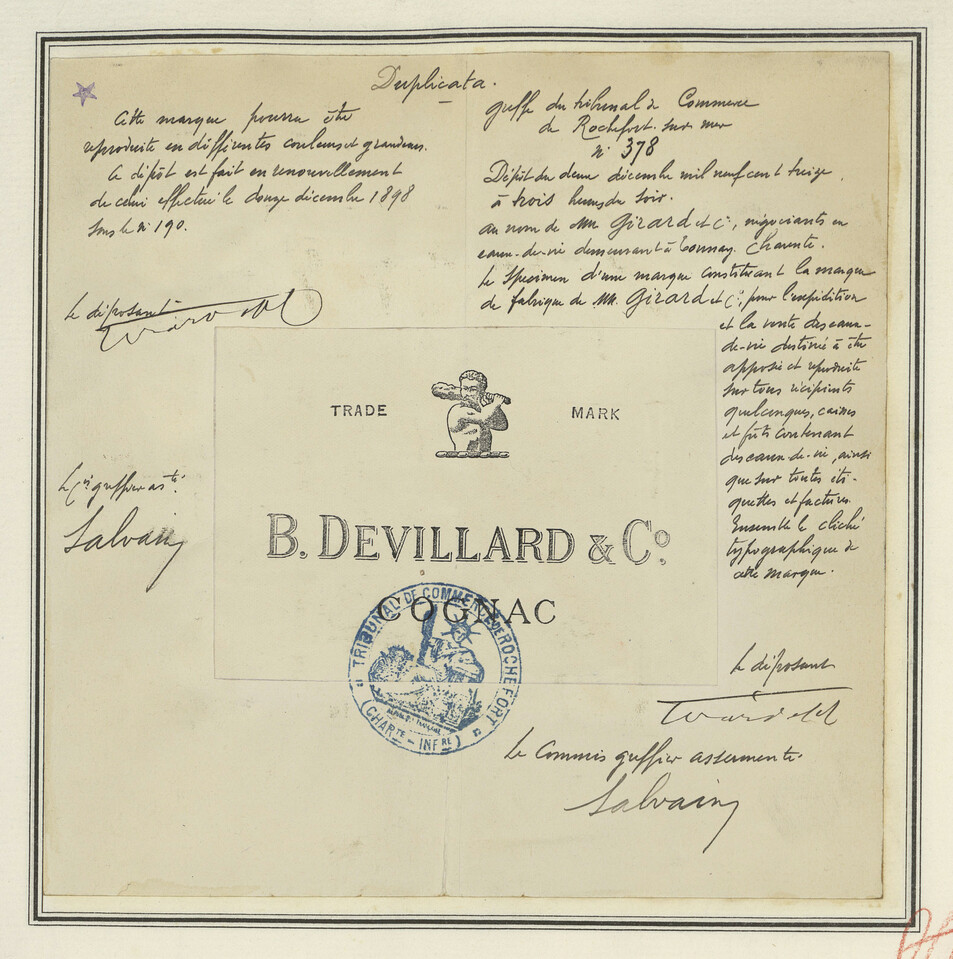 Duplicata.
Cette marque pourra être
reproduite en différentes couleurs et grandeurs.
Ce dépôt est fait en renouvellement
de celui effectué le douze décembre 1898
sous le n° 190.
Le déposant
Le Cis greffier asté.
Salvain
Greffe du tribunal de Commerce
de Rochefort-sur-mer
N° 378
Dépôt du deux décembre mil neuf cent treize.
à trois heures du soir.
au nom de MM. Girard et Cie, négociants en
eaux-de-vie demeurant à Tonnay-Charente.
le Specimen d'une marque constituant la marque
de fabrique de MM. Girard et Cie, pour l'expédition
et la vente des eaux-
de-vie destinée à être
apposée et reproduite
sur tous récipients
quelconques, caisses
et fûts contenant
des eaux-de-vie, ainsi
que sur toutes éti-
quettes et factures.
Ensemble le cliché
typographique de
cette marque.
TRADE MARK
B. DEVILLARD & Co.
COGNAC
TRIBUNAL DE COMMERCE DE ROCHEFORT
(CHARTE - INFRE)
Le déposant
Le Commis greffier assermenté.
Salvain